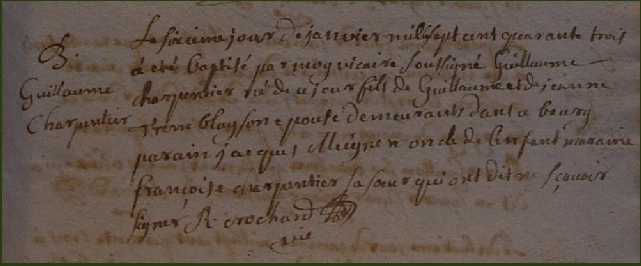 B.
Guillaume
Charpentier
Le sixieme jour de janvier mil sept cent quarante trois
a eté baptisé par moy vicaire soussigné Guillaume
charpentier né de ce jour fils de Guillaume et de jeanne
epouse demeurants dans ce bourg
parain jacques oncle de lenfant maraine
françoise charpentier sa sœur qui ont dit ne sçavoir
signer R crochard
vic